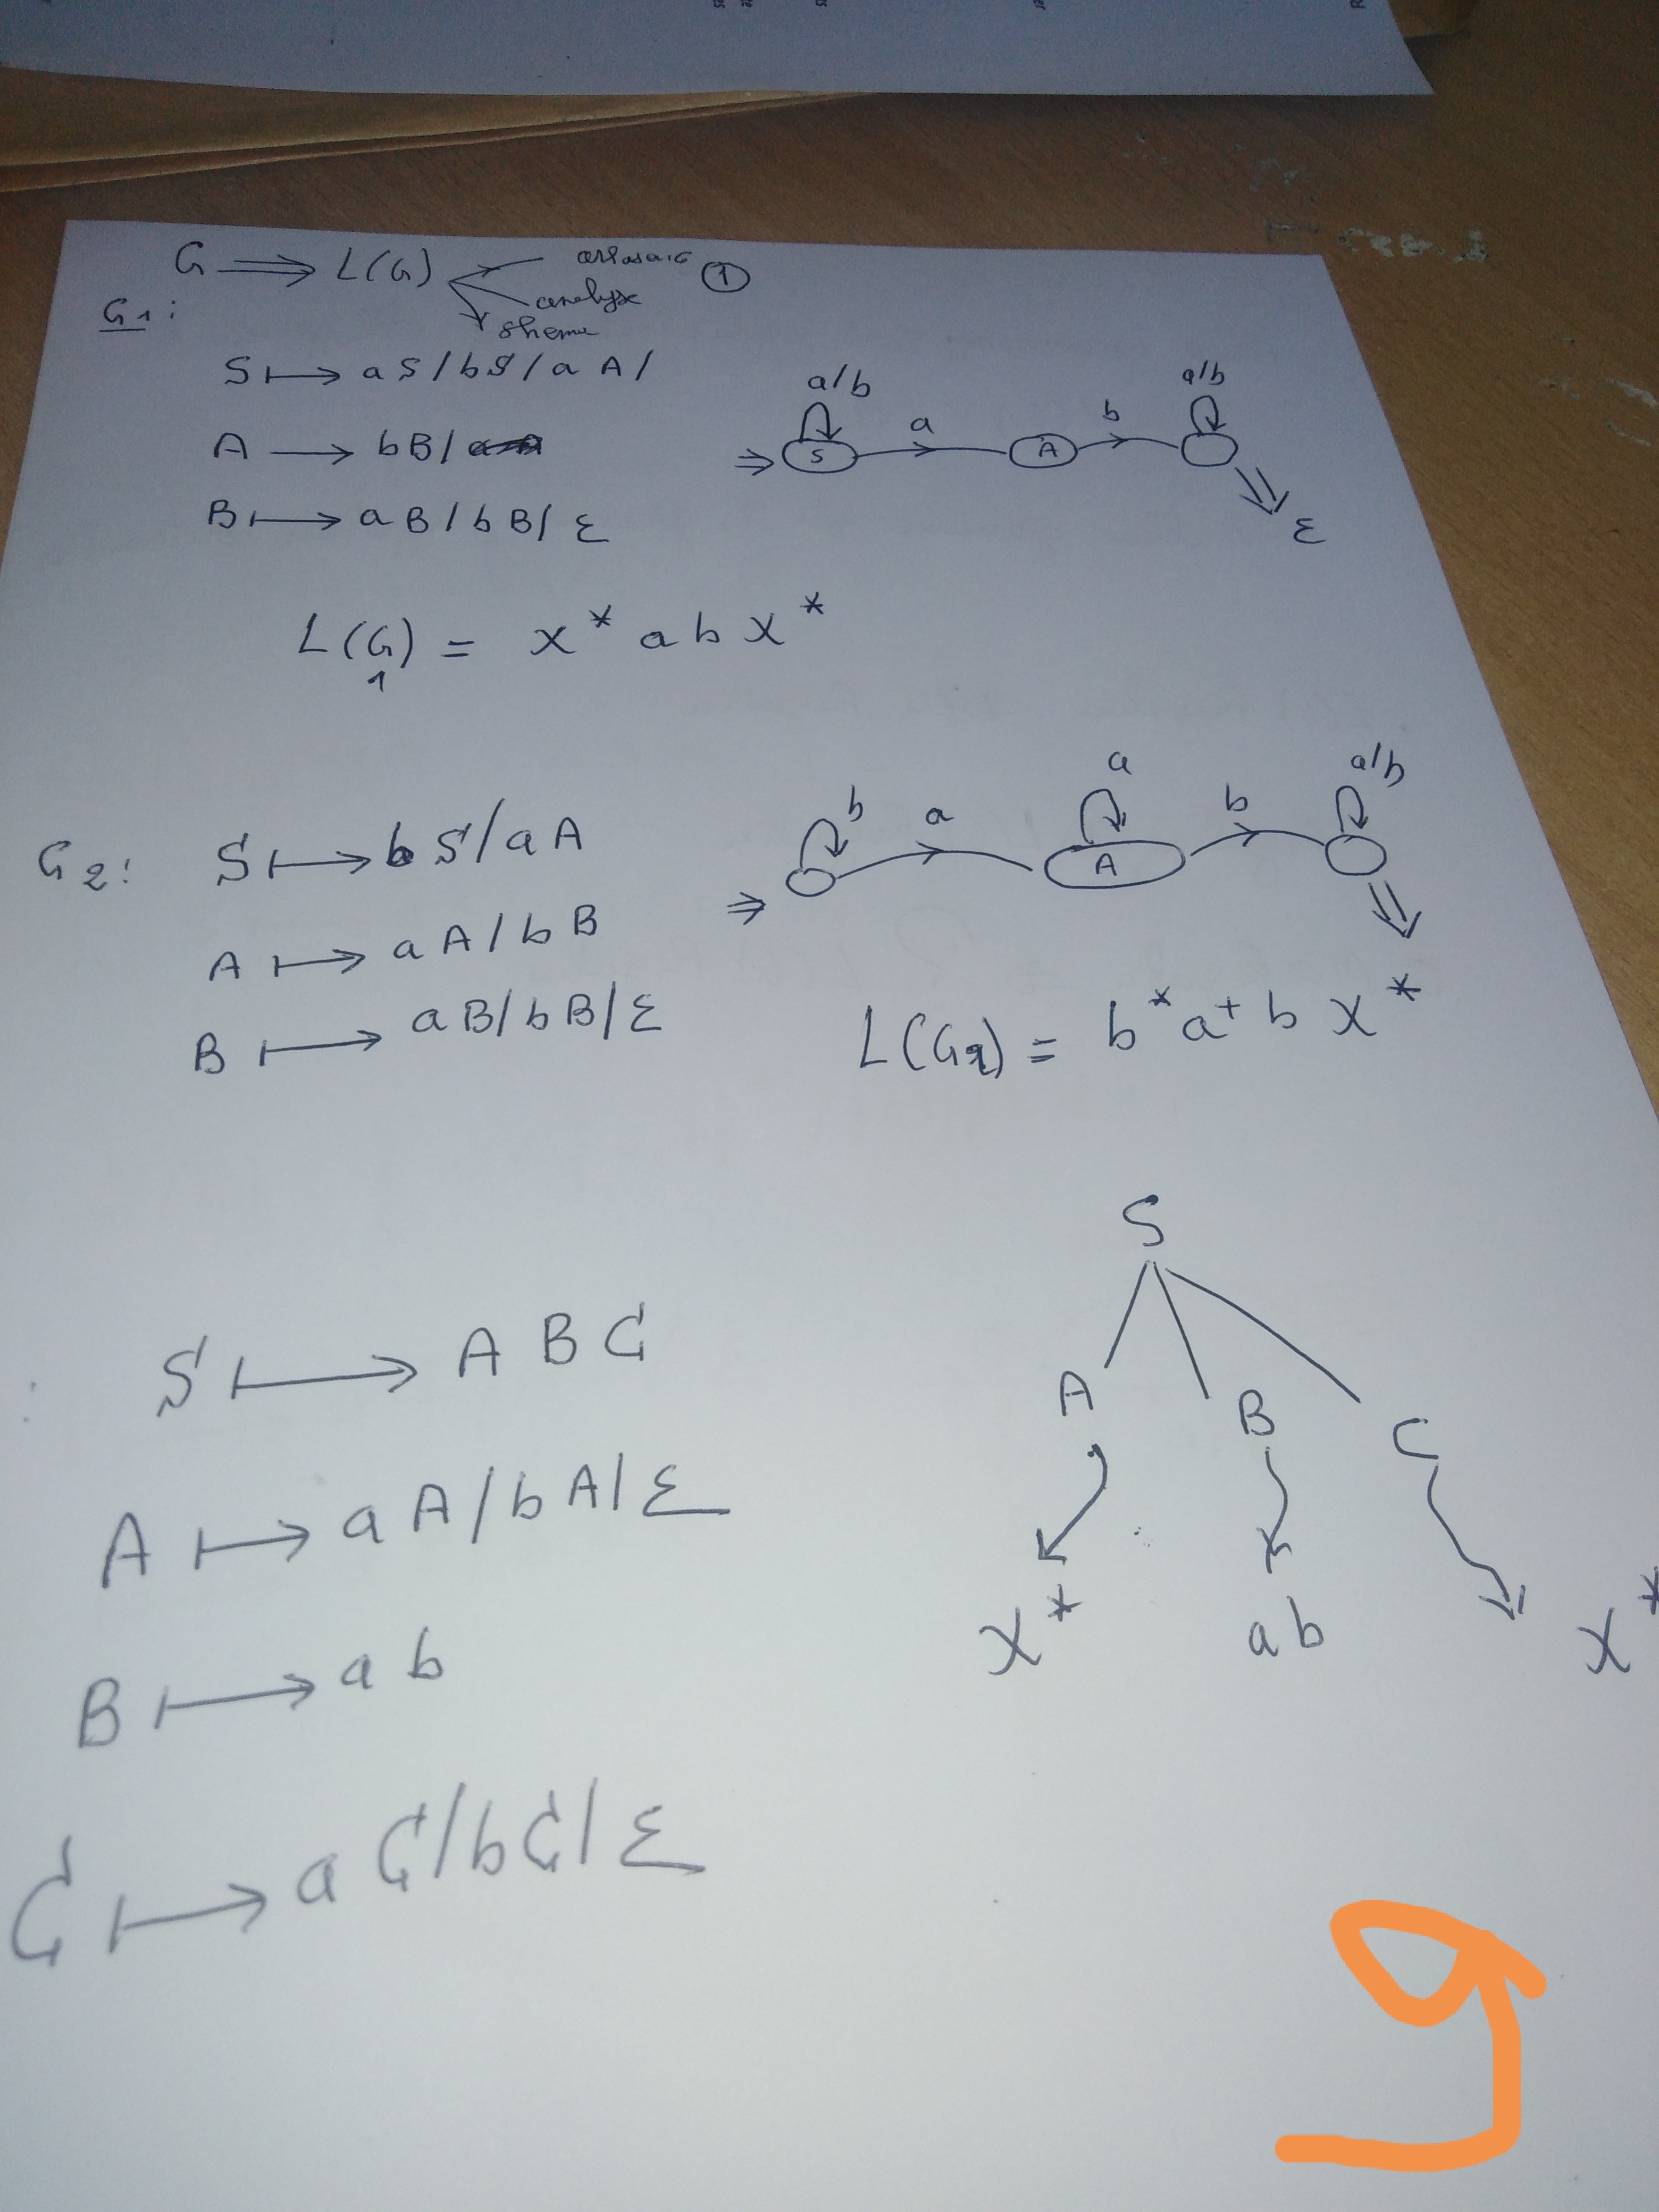 G ⟹ L(G)
analyse ①
G1:
S ⟼ aS/bS/aA/
A ⟶ bB/
B ⟼ aB/bB/ε
a/b
a
b
a/b
⇒ S A
ε
L(G1) = X* ab X*
G2: S ⟼ bS/aA
A ⟼ aA/bB
B ⟼ aB/bB/ε
b
a
a
b
a/b
⇒ A
L(G2) = b* a+ b X*
S ⟼ A B C
A ⟼ aA/bA/ε
B ⟼ ab
C ⟼ aC/bC/ε
S
A B C
X* ab X*